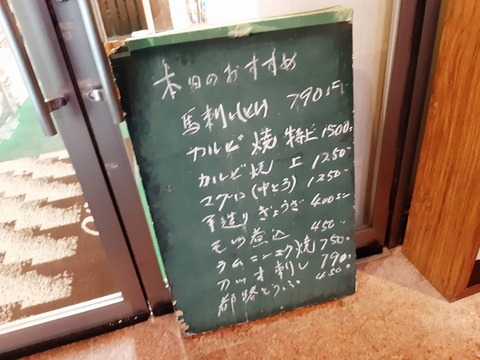 本日のおすすめ
馬刺し 790
カルビ焼 特上 1500
カルビ焼 上 1250
マグロ(中とろ) 1250
手造りぎょうざ 400
モツ煮込 450
ラムニンニク焼 750
カツオ刺し 790
都路とうふ 450